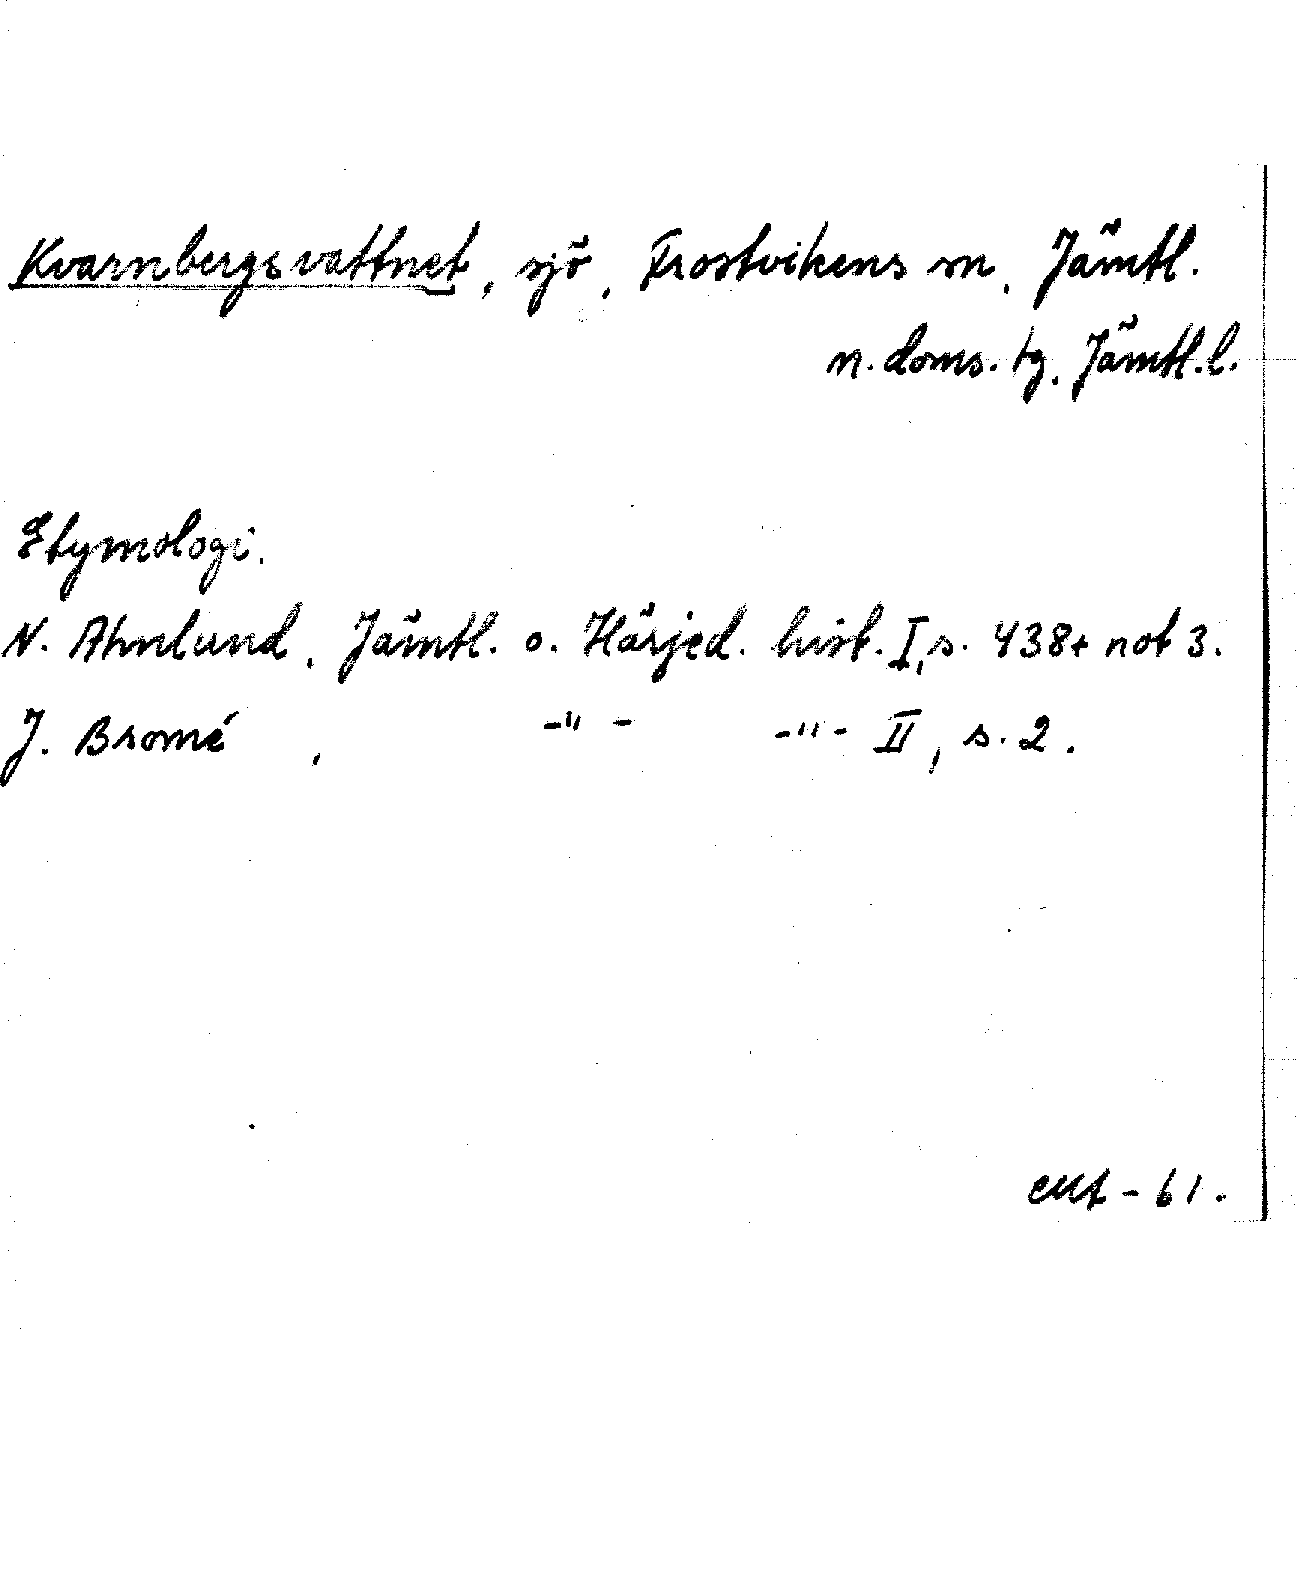 Kvarnbergsvattnet, sjö, Frostvikens sn, Jämtl.
n. doms. tg, Jämtl.l.
Etymologi.
N. Ahnlund, Jämtl. o. Härjed. hist. I, s. 438+ not 3.
J. Bromé, -"- -"- II, s. 2.
-61.